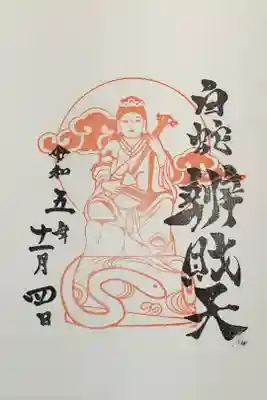 白蛇辨財天
令和五年
十二月四日